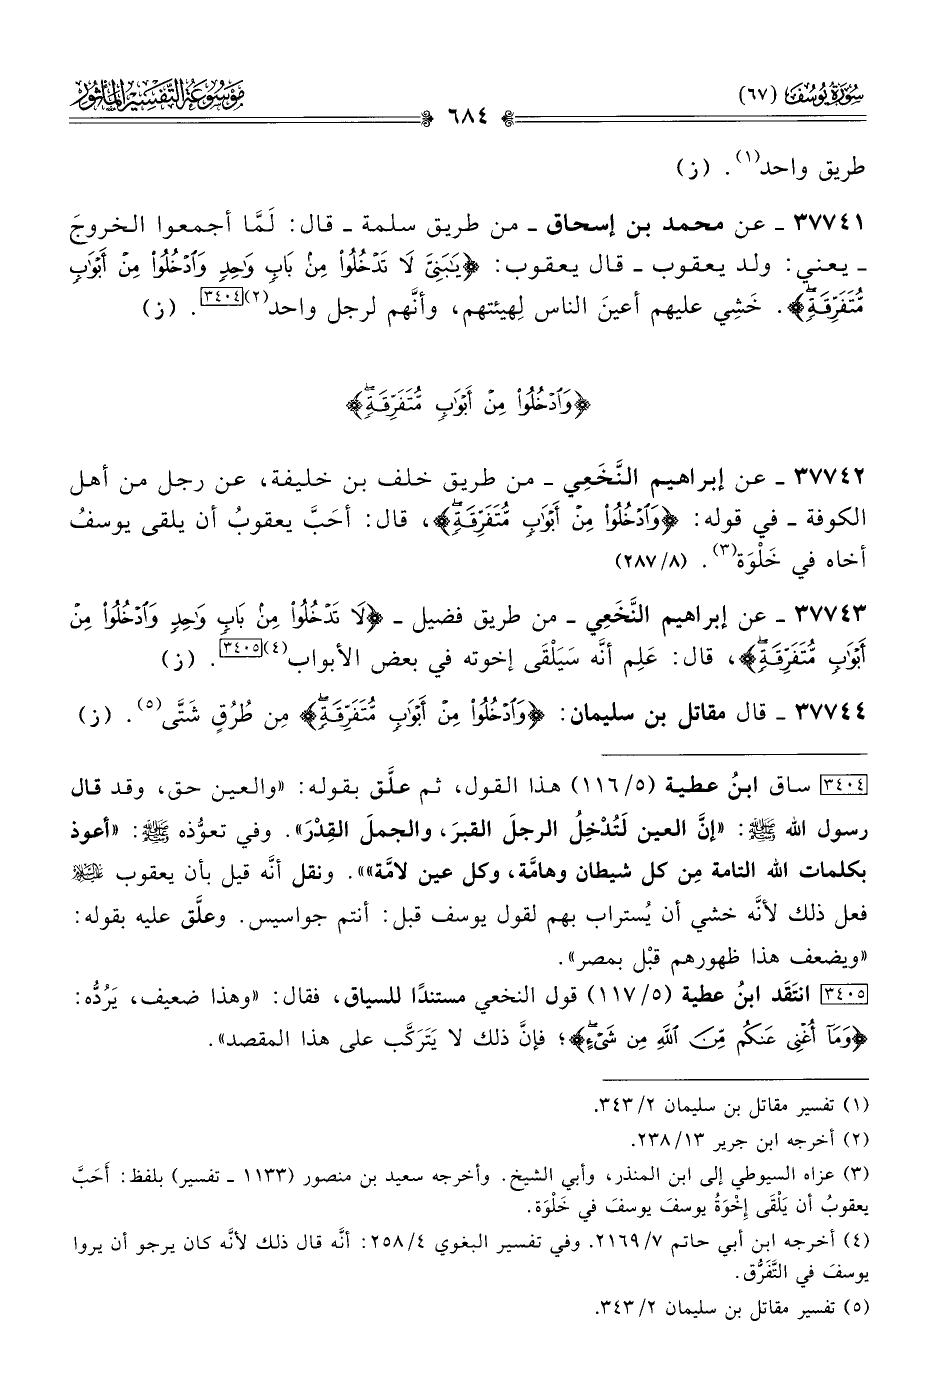 سُورَةُ يُوسُفَ (٦٧)
٦٨٤
مَوْسُوعَةُ التَّفْسِيْرِ المَأْثُورِ
طريق واحد(١). (ز)
٣٧٧٤١ ـ عن محمد بن إسحاق ـ من طريق سلمة ـ قال: لَمَّا أجمعوا الخروجَ
ـ يعني: ولد يعقوب ـ قال يعقوب: ﴿يَٰبَنِيَّ لَا تَدۡخُلُواْ مِنۢ بَابٖ وَٰحِدٖ وَٱدۡخُلُواْ مِنۡ أَبۡوَٰبٖ
مُّتَفَرِّقَةٖۖ﴾. خَشِي عليهم أعينَ الناس لِهيئتهم، وأنَّهم لرجل واحد(٢)[٣٤٠٤]. (ز)
﴿وَٱدۡخُلُواْ مِنۡ أَبۡوَٰبٖ مُّتَفَرِّقَةٖۖ﴾
٣٧٧٤٢ ـ عن إبراهيم النَّخَعِي ـ من طريق خلف بن خليفة، عن رجل من أهل
الكوفة ـ في قوله: ﴿وَٱدۡخُلُواْ مِنۡ أَبۡوَٰبٖ مُّتَفَرِّقَةٖۖ﴾، قال: أحَبَّ يعقوبُ أن يلقى يوسفُ
أخاه في خَلْوَة(٣). (٨/ ٢٨٧)
٣٧٧٤٣ ـ عن إبراهيم النَّخَعِي ـ من طريق فضيل ـ ﴿لَا تَدۡخُلُواْ مِنۢ بَابٖ وَٰحِدٖ وَٱدۡخُلُواْ مِنۡ
أَبۡوَٰبٖ مُّتَفَرِّقَةٖۖ﴾، قال: عَلِم أنَّه سَيَلْقَى إخوته في بعض الأبواب(٤)[٣٤٠٥]. (ز)
٣٧٧٤٤ ـ قال مقاتل بن سليمان: ﴿وَٱدۡخُلُواْ مِنۡ أَبۡوَٰبٖ مُّتَفَرِّقَةٖۖ﴾ مِن طُرُقٍ شَتَّى(٥). (ز)
[٣٤٠٤] ساق ابنُ عطية (٥/ ١١٦) هذا القول، ثم علَّق بقوله: «والعين حق، وقد قال
رسول الله ﷺ: «إنَّ العين لَتُدْخِلُ الرجلَ القبرَ، والجملَ القِدْرَ». وفي تعوُّذه ﷺ: «أعوذ
بكلمات الله التامة مِن كل شيطان وهامَّة، وكل عين لامَّة»». ونقل أنَّه قيل بأن يعقوب عليه السلام
فعل ذلك لأنَّه خشي أن يُستراب بهم لقول يوسف قبل: أنتم جواسيس. وعلَّق عليه بقوله:
«ويضعف هذا ظهورهم قبْل بمصر».
[٣٤٠٥] انتَقَد ابنُ عطية (٥/ ١١٧) قول النخعي مستندًا للسياق، فقال: «وهذا ضعيف، يَرُدُّه:
﴿وَمَآ أُغۡنِي عَنكُم مِّنَ ٱللَّهِ مِن شَيۡءٍۖ﴾؛ فإنَّ ذلك لا يَتَركَّب على هذا المقصد».
(١) تفسير مقاتل بن سليمان ٢/ ٣٤٣.
(٢) أخرجه ابن جرير ١٣/ ٢٣٨.
(٣) عزاه السيوطي إلى ابن المنذر، وأبي الشيخ. وأخرجه سعيد بن منصور (١١٣٣ ـ تفسير) بلفظ: أَحَبَّ
يعقوبُ أن يَلْقَى إِخْوَةُ يوسفَ يوسفَ في خَلْوَة.
(٤) أخرجه ابن أبي حاتم ٧/ ٢١٦٩. وفي تفسير البغوي ٤/ ٢٥٨: أنَّه قال ذلك لأنَّه كان يرجو أن يروا
يوسفَ في التَّفَرُّق.
(٥) تفسير مقاتل بن سليمان ٢/ ٣٤٣.